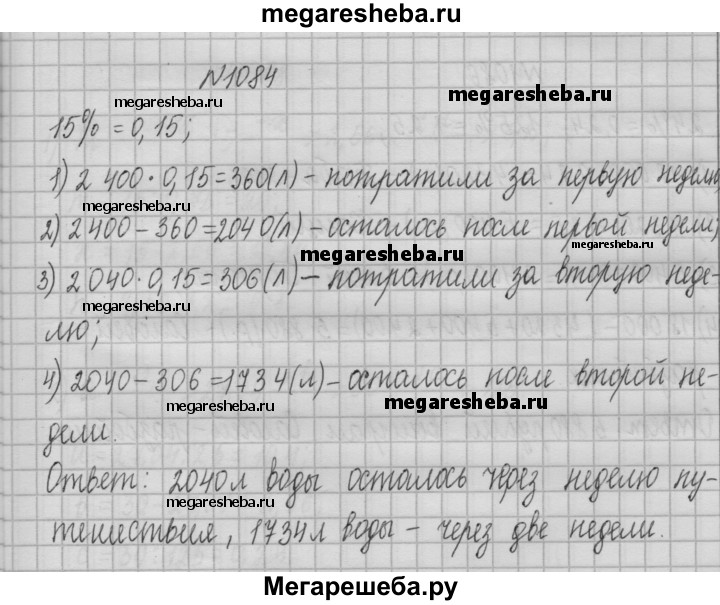 megaresheba.ru
№1084
megaresheba.ru
megaresheba.ru
15% = 0,15;
1) 2 400 · 0,15 = 360 (л) – потратили за первую неделю,
megaresheba.ru
2) 2400 – 360 = 2040 (л) – осталось после первой недели,
megaresheba.ru
megaresheba.ru
3) 2 040 · 0,15 = 306 (л) – потратили за вторую неде-
megaresheba.ru
лю;
4) 2040 – 306 = 1734 (л) – осталось после второй не-
megaresheba.ru
megaresheba.ru
дели.
Ответ: 2040 л воды осталось через неделю пу-
megaresheba.ru
тешествия, 1734 л воды – через две недели.
Мегарешеба.ру